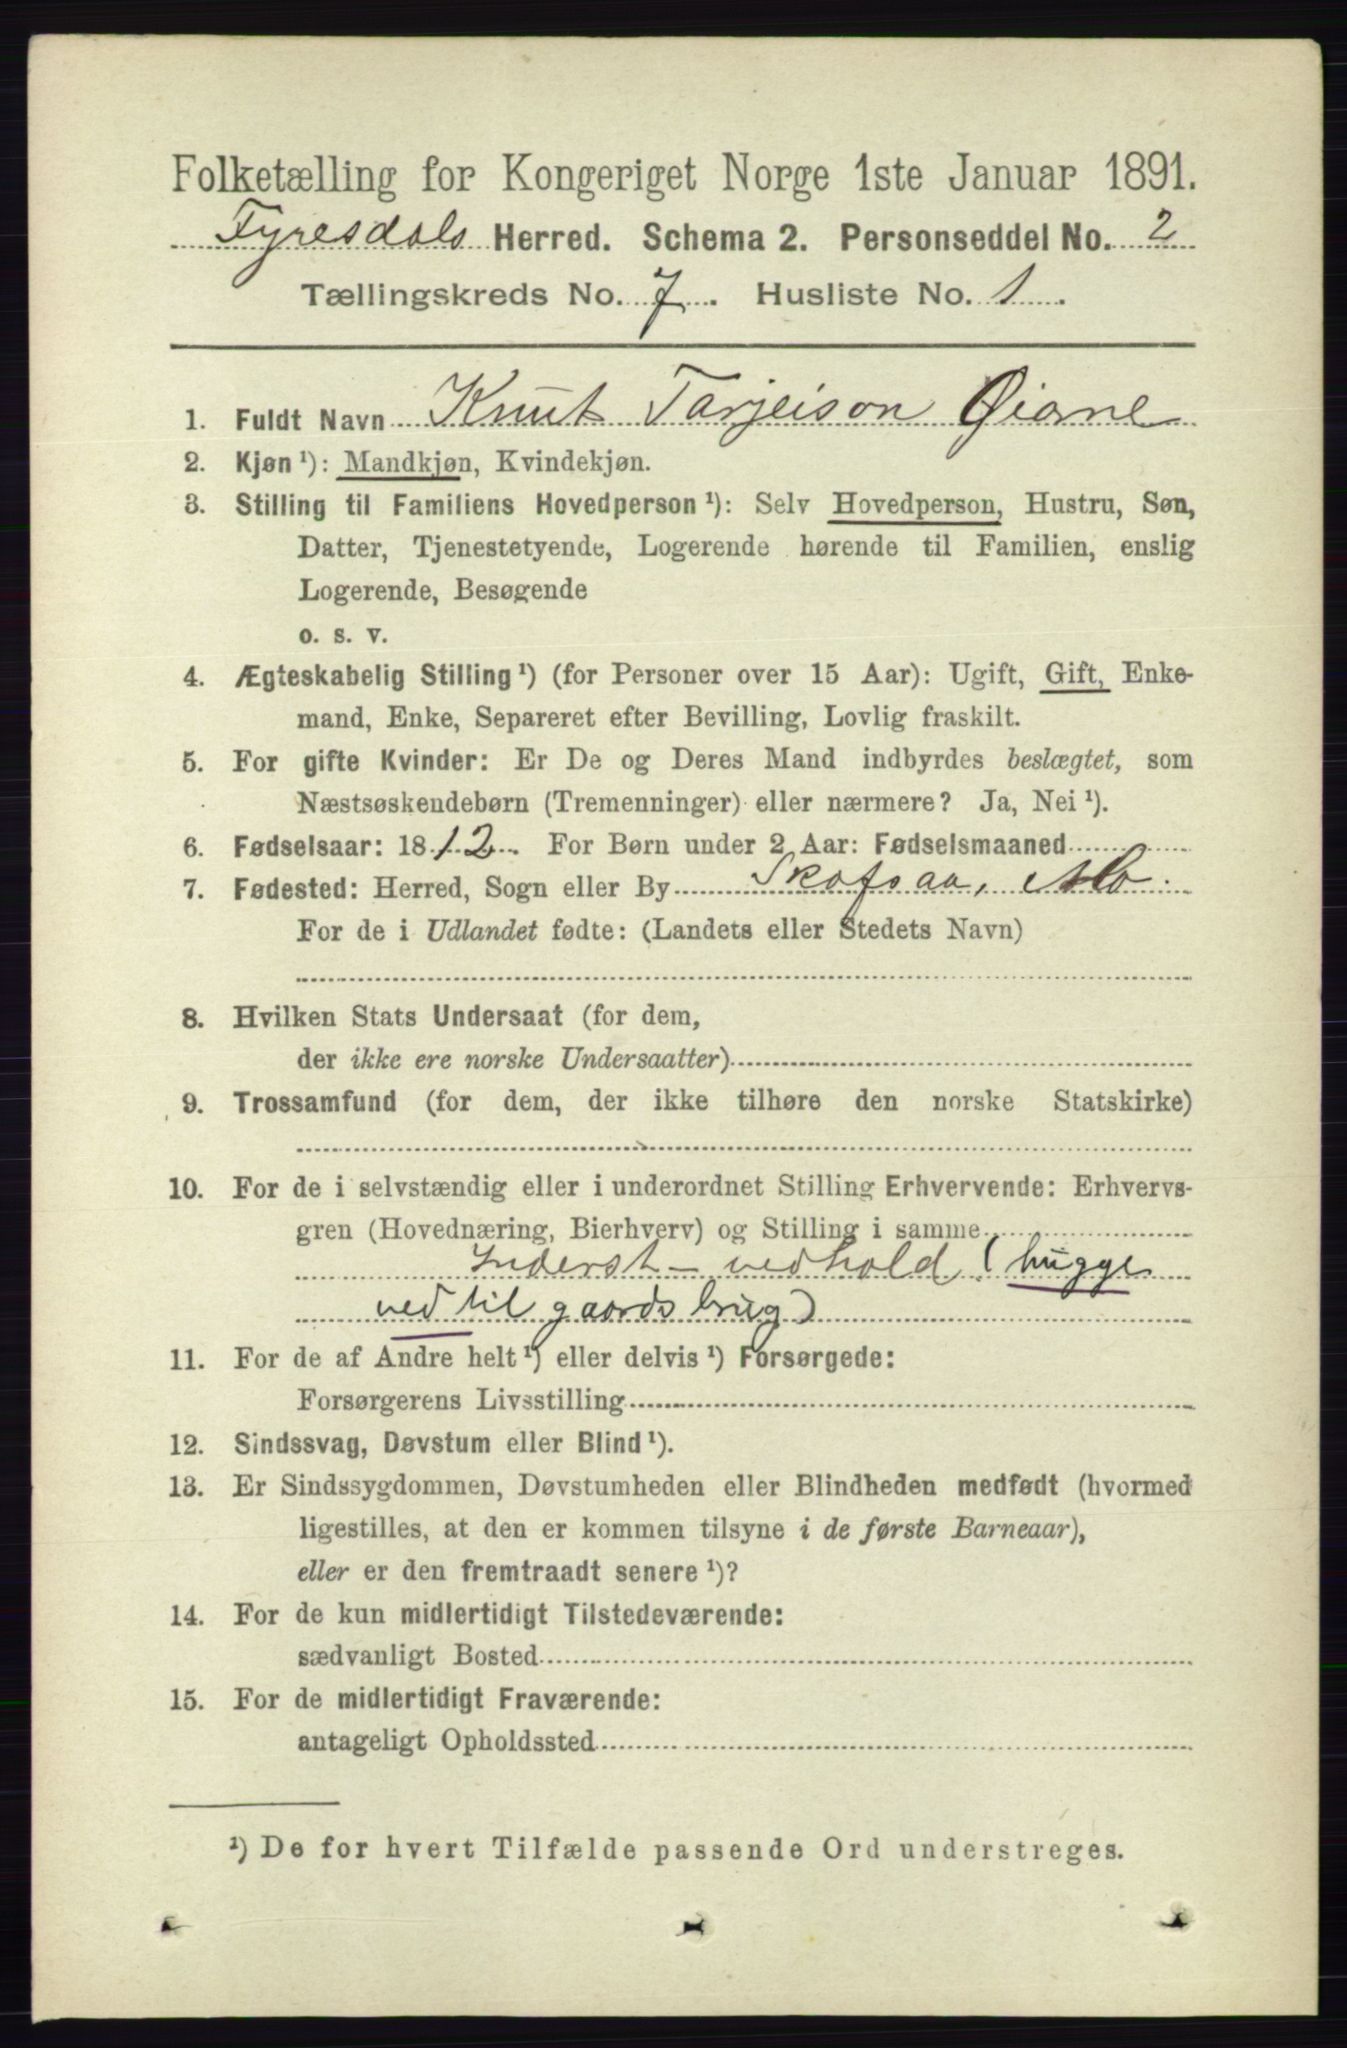 Folketælling for Kongeriget Norge 1ste Januar 1891.
Fyresdals Herred. Schema 2. Personseddel No. 2
Tællingskreds No. 7. Husliste No. 1.
1. Fuldt Navn Knut Tarjeison Øiane
2. Kjøn ¹): Mandkjøn, Kvindekjøn.
3. Stilling til Familiens Hovedperson ¹): Selv Hovedperson, Hustru, Søn,
Datter, Tjenestetyende, Logerende hørende til Familien, enslig
Logerende, Besøgende
o. s. v.
4. Ægteskabelig Stilling ¹) (for Personer over 15 Aar): Ugift, Gift, Enke-
mand, Enke, Separeret efter Bevilling, Lovlig fraskilt.
5. For gifte Kvinder: Er De og Deres Mand indbyrdes beslægtet, som
Næstsøskendebørn (Tremenninger) eller nærmere? Ja, Nei ¹).
6. Fødselsaar: 1812. For Børn under 2 Aar: Fødselsmaaned
7. Fødested: Herred, Sogn eller By Skafsaa, Mo.
For de i Udlandet fødte: (Landets eller Stedets Navn)
8. Hvilken Stats Undersaat (for dem,
der ikke ere norske Undersaatter)
9. Trossamfund (for dem, der ikke tilhøre den norske Statskirke)
10. For de i selvstændig eller i underordnet Stilling Erhvervende: Erhvervs-
gren (Hovednæring, Bierhverv) og Stilling i samme
Inderst - vedhold (hugge
ved til gaardsbrug)
11. For de af Andre helt ¹) eller delvis ¹) Forsørgede:
Forsørgerens Livsstilling
12. Sindssvag, Døvstum eller Blind ¹).
13. Er Sindssygdommen, Døvstumheden eller Blindheden medfødt (hvormed
ligestilles, at den er kommen tilsyne i de første Barneaar),
eller er den fremtraadt senere ¹)?
14. For de kun midlertidigt Tilstedeværende:
sædvanligt Bosted
15. For de midlertidigt Fraværende:
antageligt Opholdssted
¹) De for hvert Tilfælde passende Ord understreges.